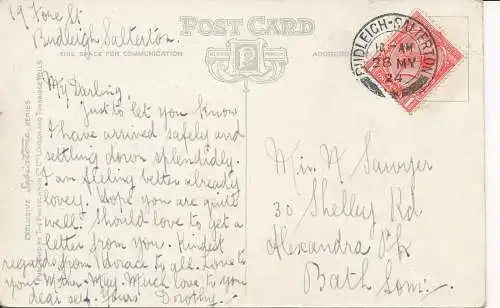 19 Fore St
Budleigh Salterton.
POST CARD
THIS SPACE FOR COMMUNICATION
ADDRESS
BUDLEIGH-SALTERTON
10-AM
26 MY
24
My Darling,
Just to let you know
I have arrived safely and
settling down splendidly.
I am feeling better already
lovey. Hope you are quite
well. Should love to get a
letter from you. Kindest
regards from Horace to all. Love to
your Mother. May. Much love to you
dear self. Yours Dorothy.
N Sawyer
30 Shelley Rd
Alexandra Pk
Bath Som.
EXCLUSIVE SERIES